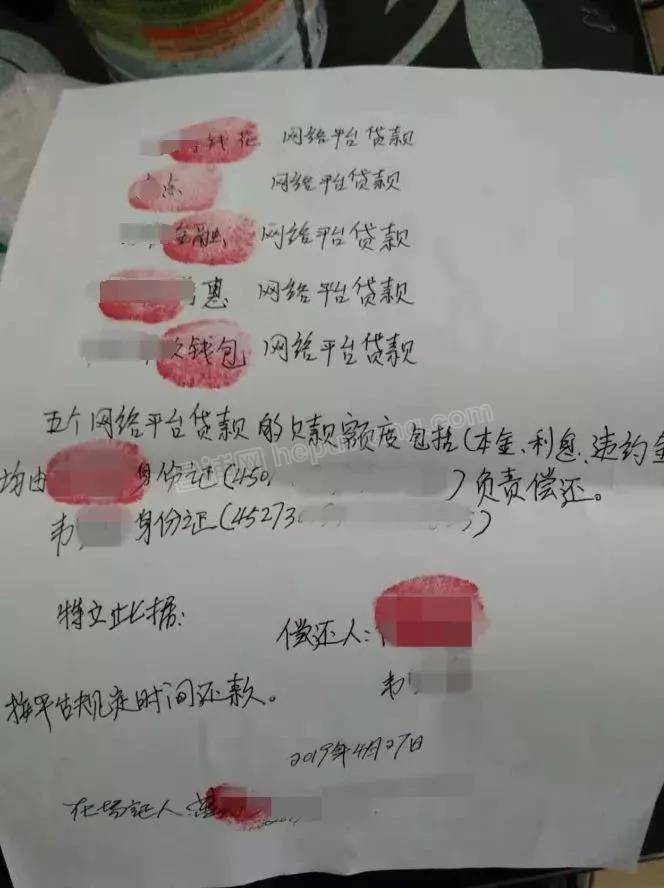 钱花 网络平台贷款
东 网络平台贷款
金融 网络平台贷款
惠 网络平台贷款
钱包 网络平台贷款
五个网络平台贷款的欠款额度包括(本金、利息、违约金
均由 身份证(450, )负责偿还。
韦 身份证(45273 )
特立此据:
偿还人:
韦
按平台规定时间还款。
2019年4月27日
在场证人:
hepuwang.com